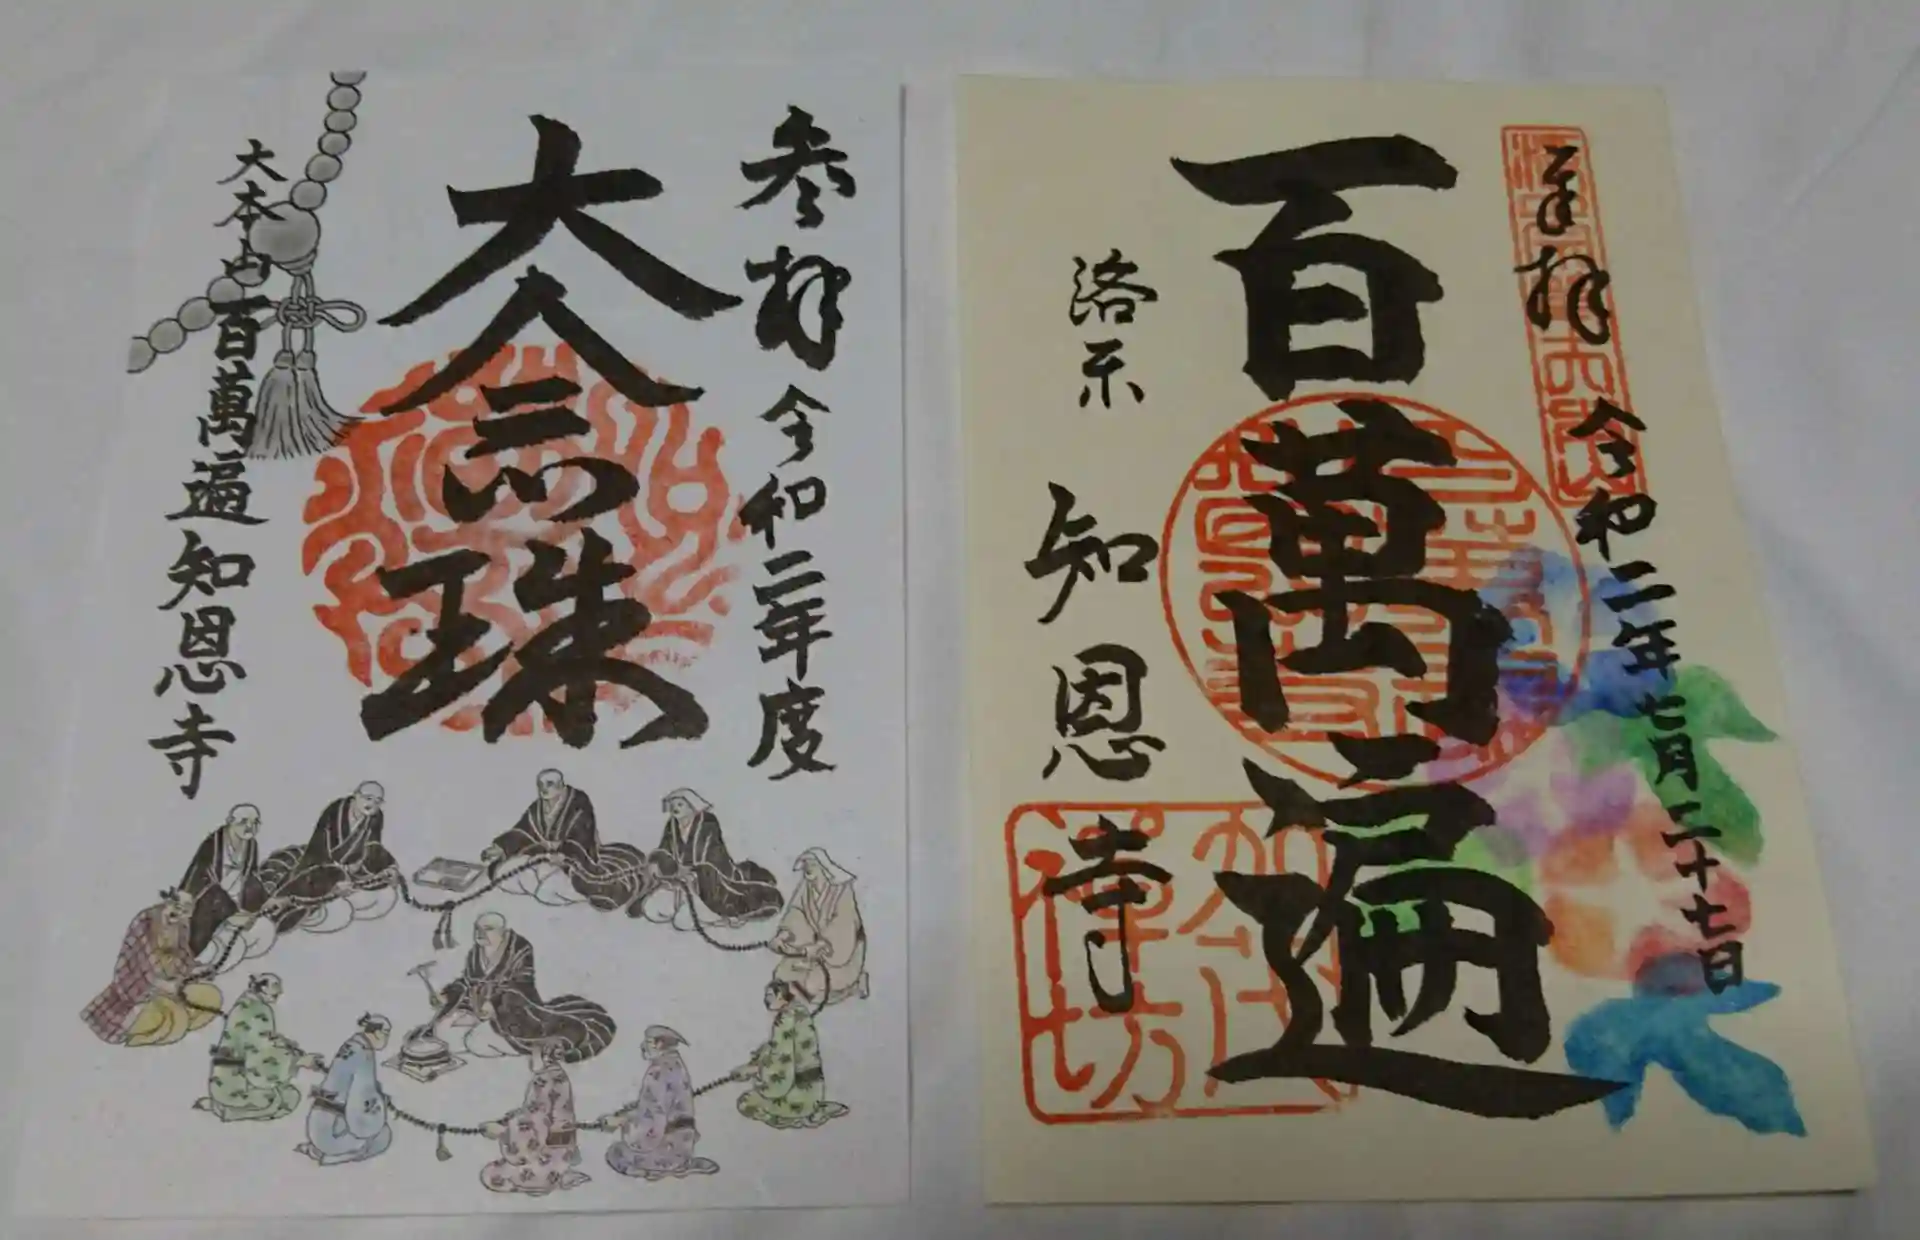 参拝 令和二年度
大念珠
大本山 百萬遍知恩寺
奉拝 令和二年七月二十七日
百萬遍
洛东 知恩寺